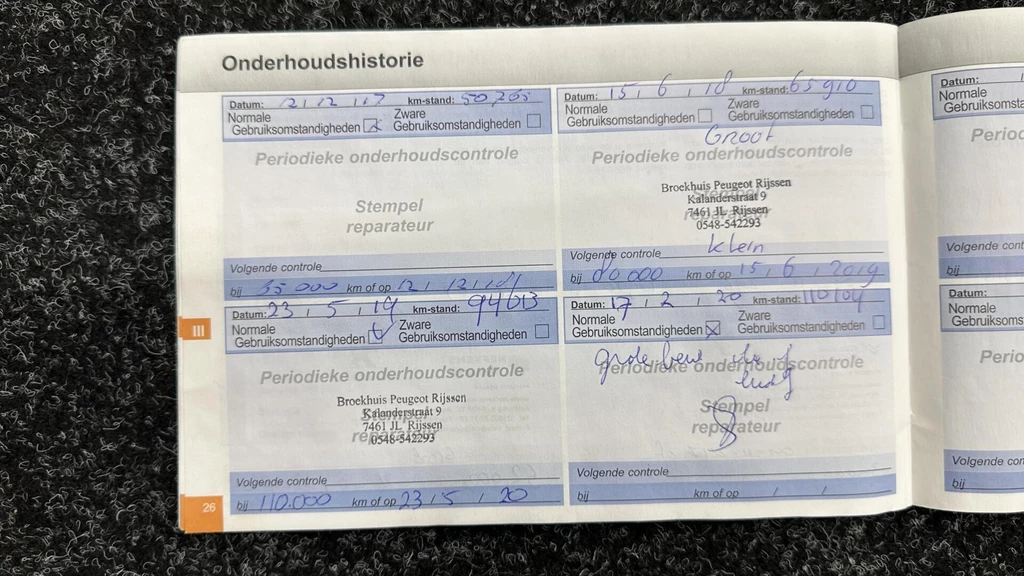 Onderhoudshistorie
Datum: 12 / 12 / 17 km-stand: 50,265
Normale Gebruiksomstandigheden x Zware Gebruiksomstandigheden
Periodieke onderhoudscontrole
Stempel
reparateur
Volgende controle
bij km of op 12 / 12 / 18
Datum: 15 / 6 / 18 km-stand: 65910
Normale Gebruiksomstandigheden Zware Gebruiksomstandigheden
Groot
Periodieke onderhoudscontrole
Broekhuis Peugeot Rijssen
Kalanderstraat 9
7461 JL Rijssen
0548-542293
Klein
Volgende controle
bij 80.000 km of op 15 / 6 / 2019
Datum: 23 / 5 / 19 km-stand: 94613
Normale Gebruiksomstandigheden Zware Gebruiksomstandigheden
Periodieke onderhoudscontrole
Broekhuis Peugeot Rijssen
Kalanderstraat 9
7461 JL Rijssen
0548-542293
Volgende controle
bij 110.000 km of op 23 / 5 / 20
Datum: 17 / 2 / 20 km-stand: 110104
Normale Gebruiksomstandigheden x Zware Gebruiksomstandigheden
Periodieke onderhoudscontrole
Stempel
reparateur
Volgende controle
bij km of op / /
III
26
Datum:
Normale
Gebruiksomsta
Period
Volgende cont
bij
Datum:
Normale
Gebruiksomst
Perio
Volgende con
bij